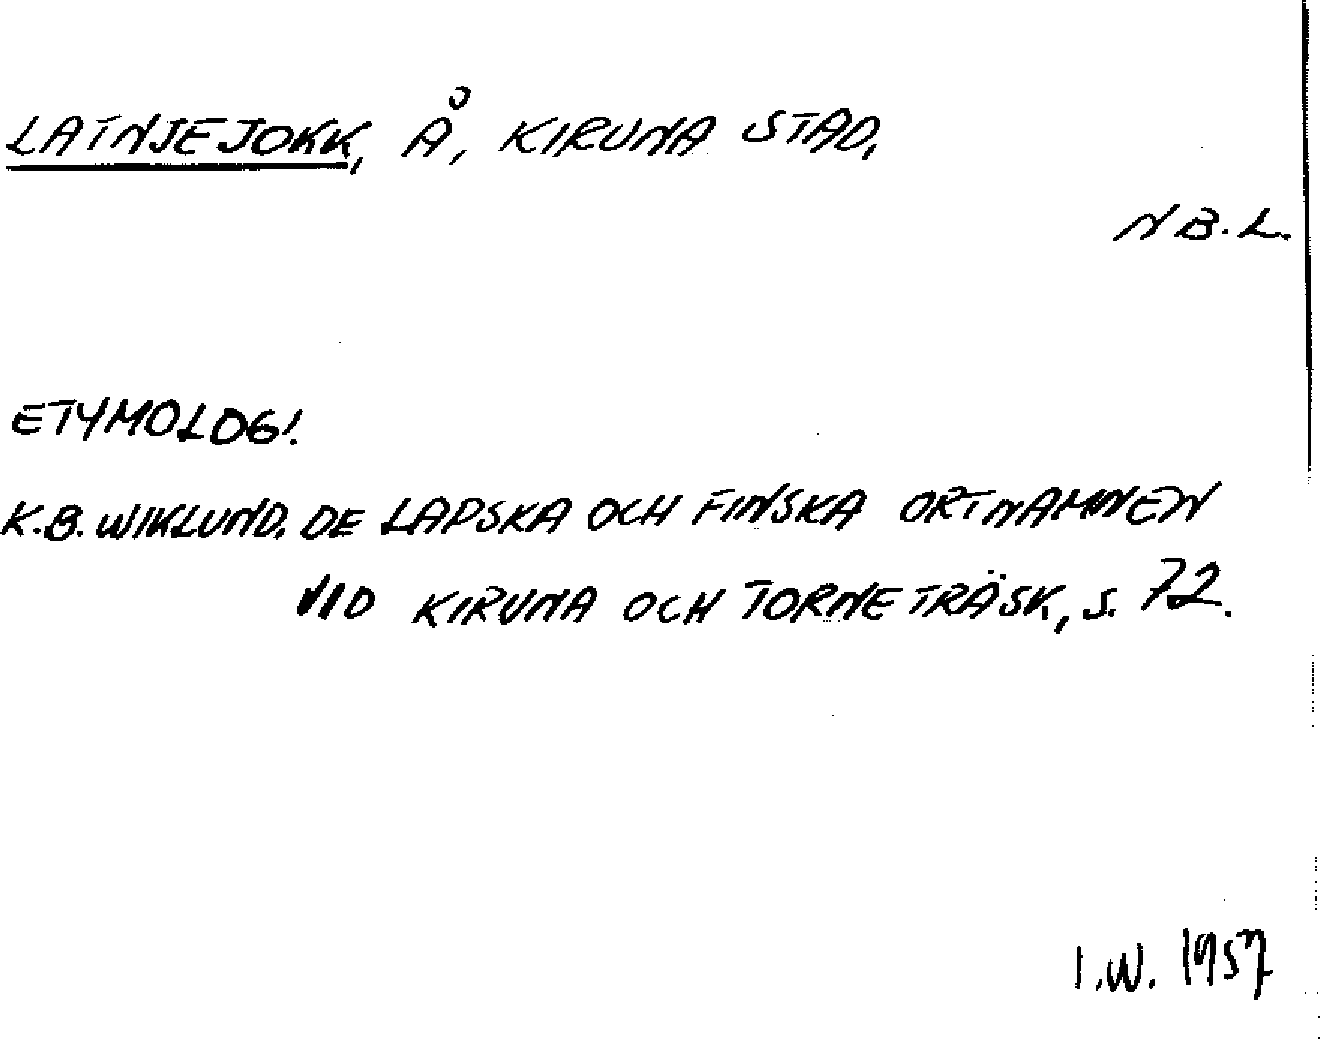 LATNJEJOKK, Å, KIRUNA STAD,
NB.L.
ETYMOLOGI.
K.B. WIKLUND, DE LAPSKA OCH FINSKA ORTNAMNEN
VID KIRUNA OCH TORNETRÄSK, S. 72.
I.W. 1957